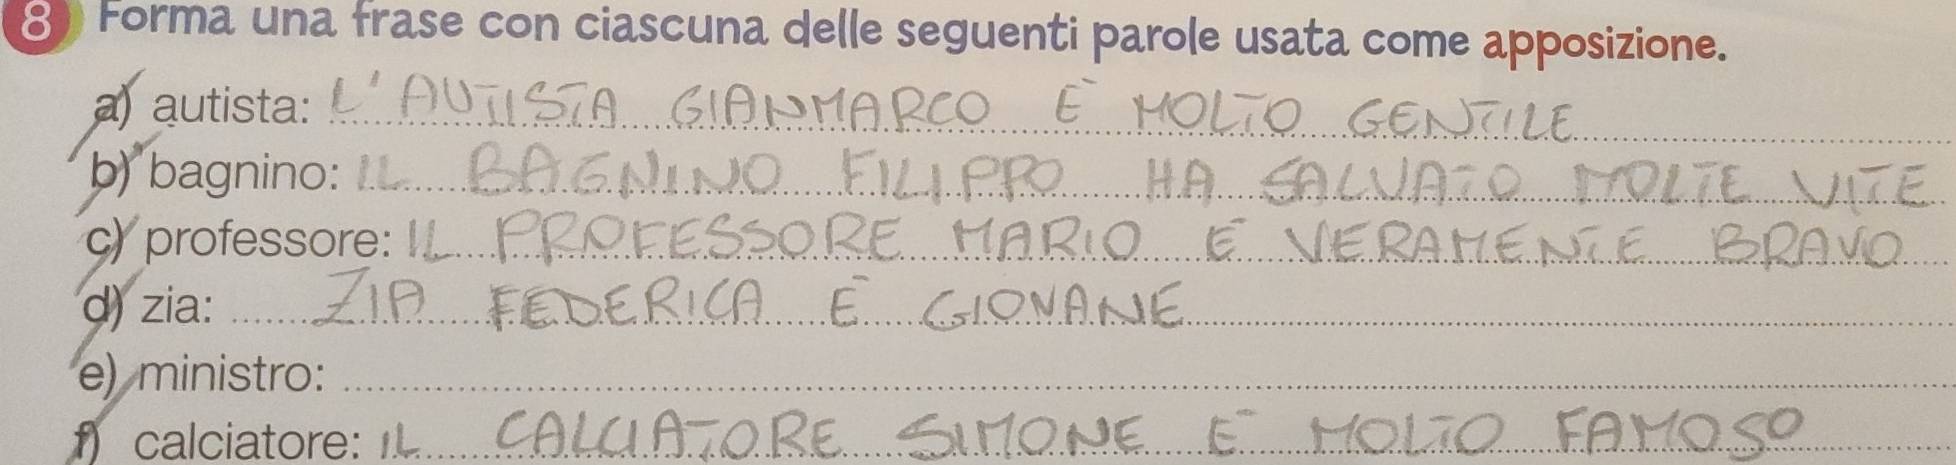 8 Forma una frase con ciascuna delle seguenti parole usata come apposizione.
a) autista: L'AUTISTA GIANMARCO È MOLTO GENTILE
b) bagnino: IL BAGNINO FILIPPO HA SALVATO MOLTE VITE
c) professore: IL PROFESSORE MARIO È VERAMENTE BRAVO
d) zia: ZIA FEDERICA È GIOVANE
e) ministro:
f) calciatore: IL CALCIATORE SIMONE È MOLTO FAMOSO